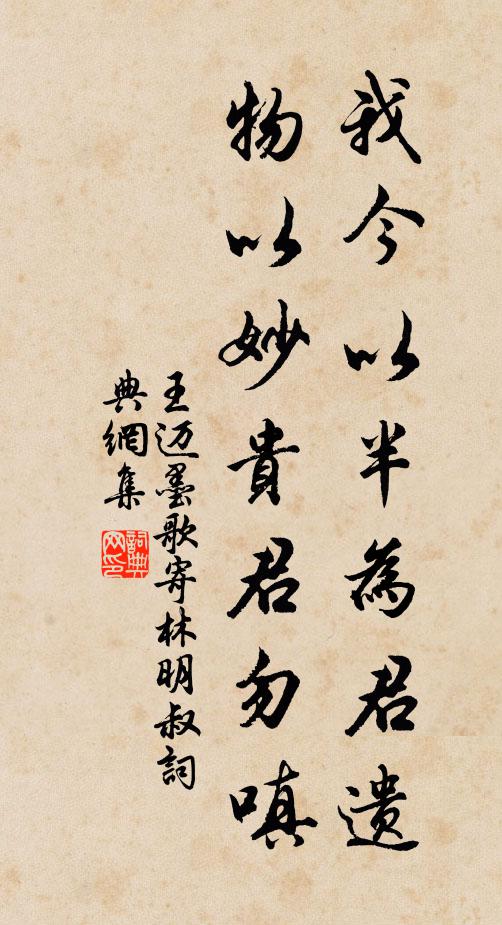 我今以半為君遺
物以妙貴君勿嗔
王迈墨歌寄林明叔詞
典網集
詞典网印